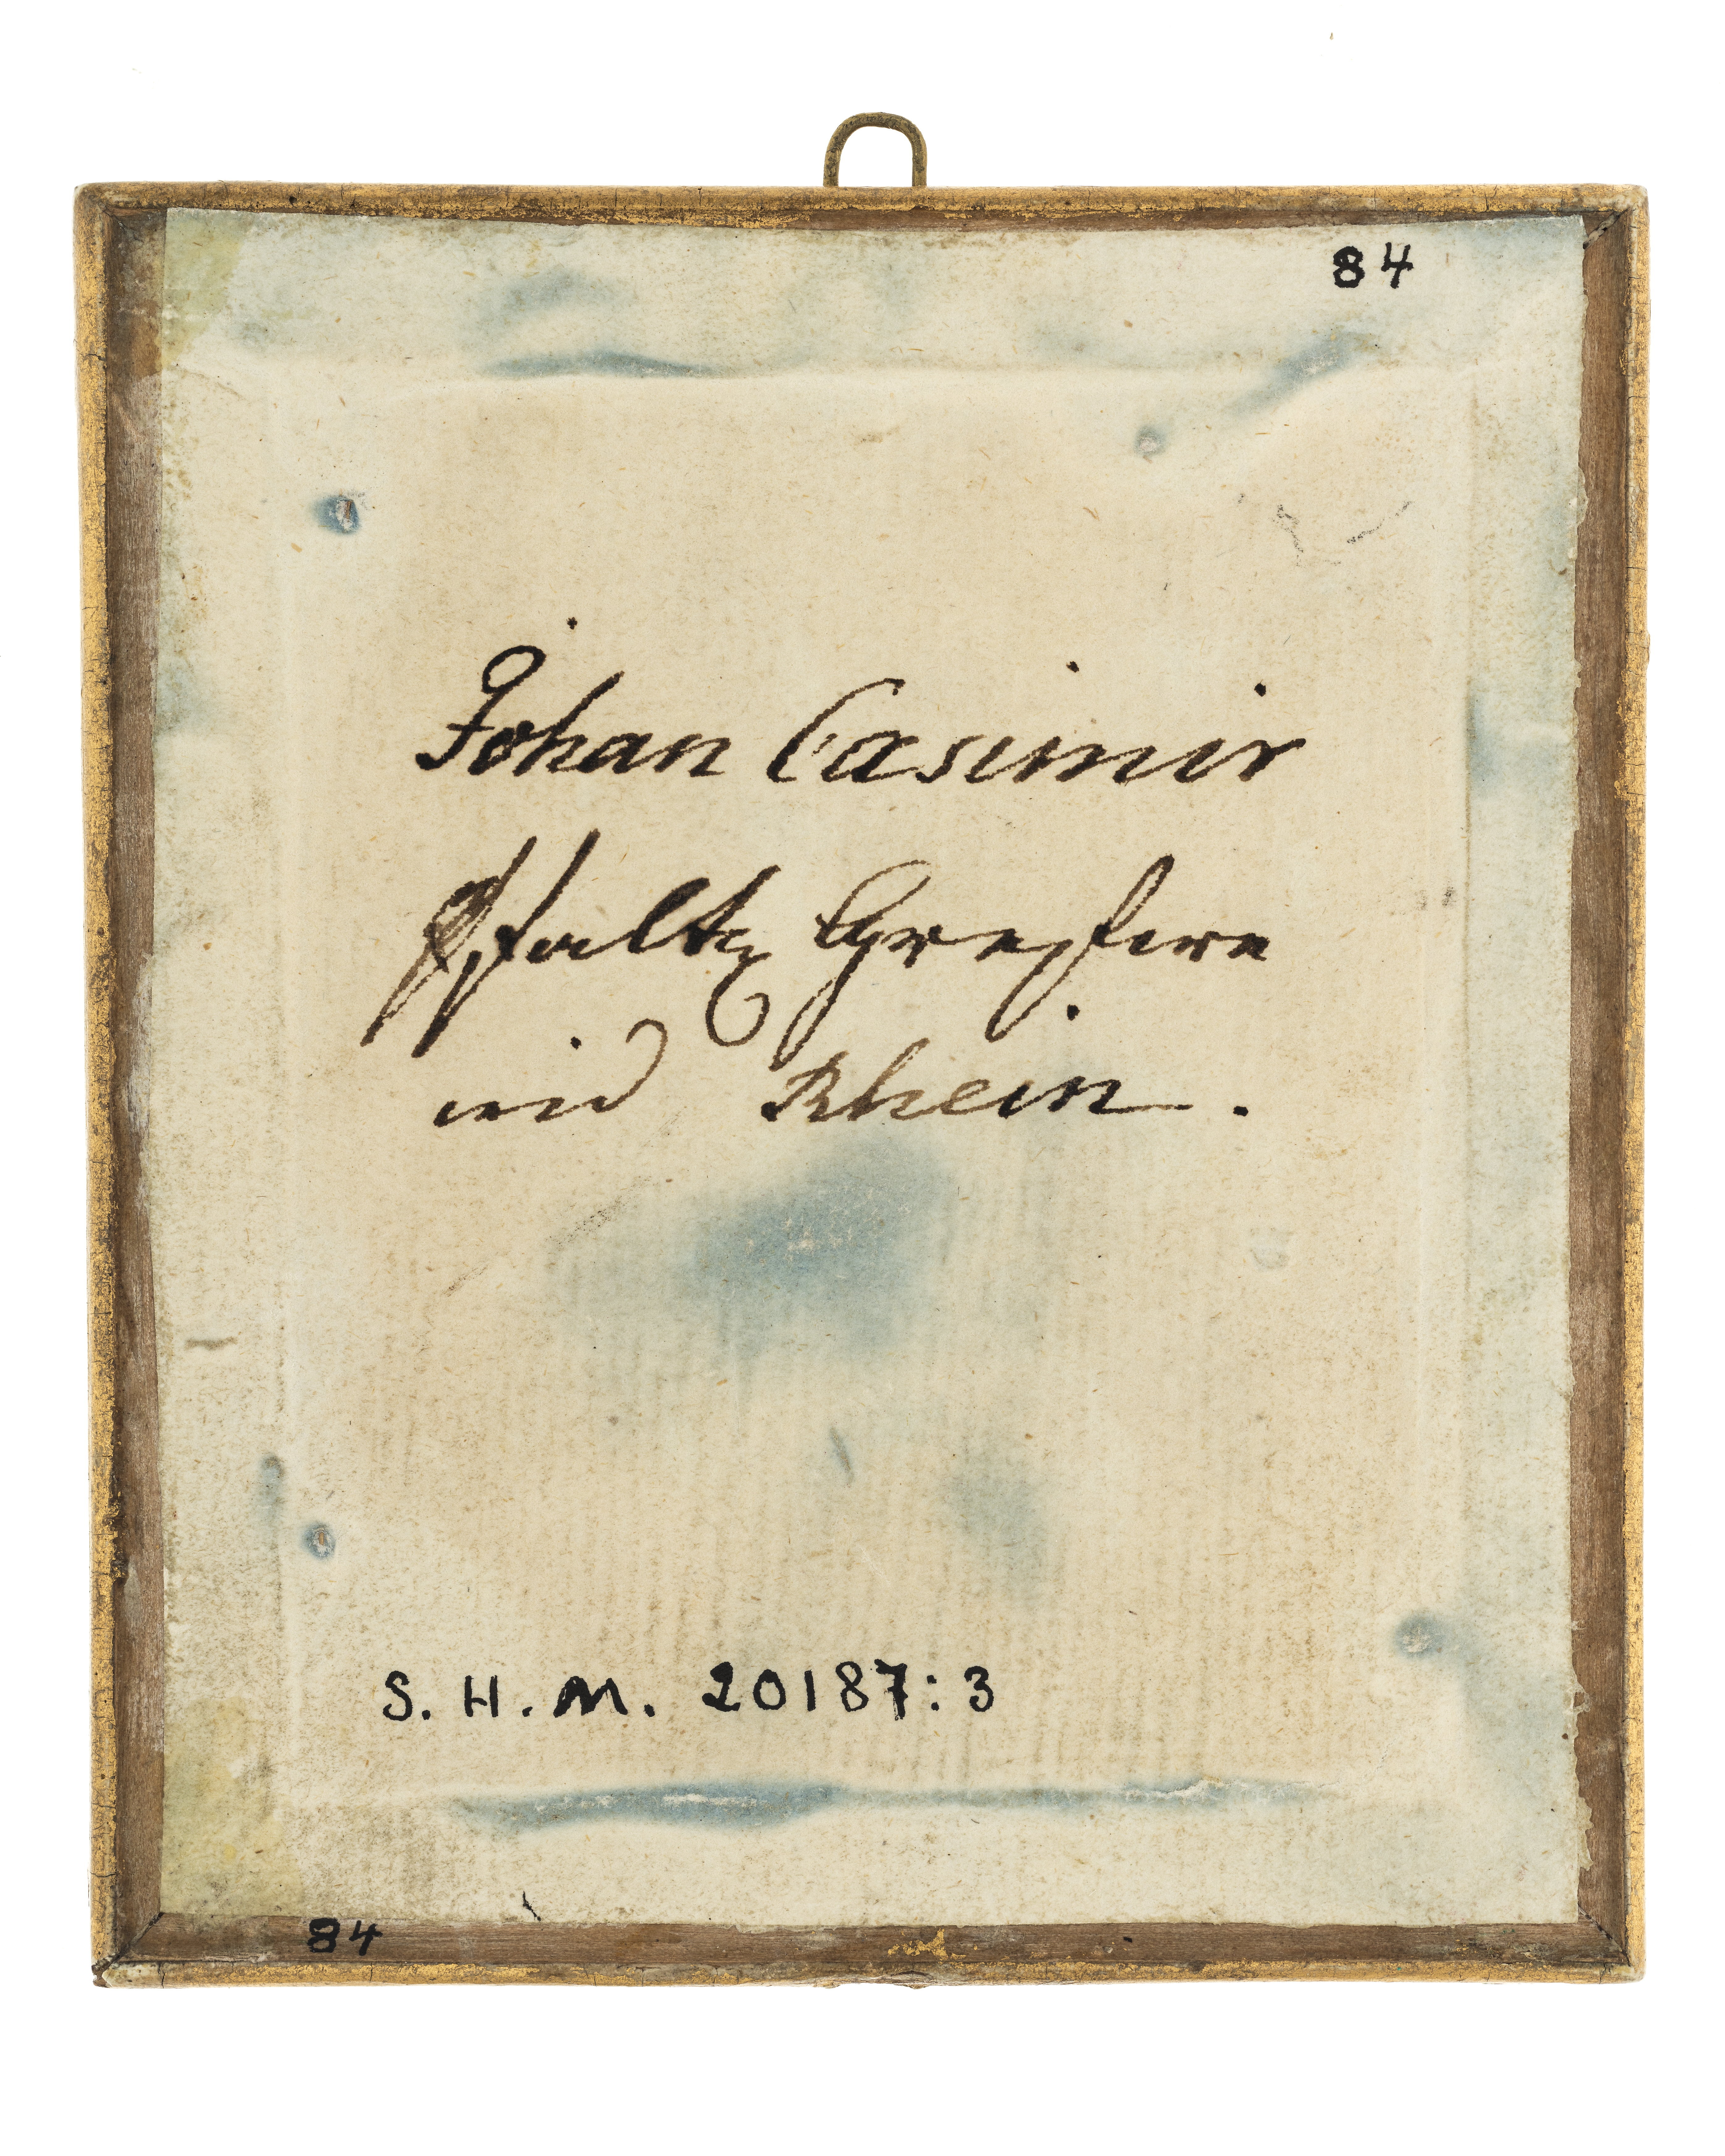 84
Johan Casimir
Pfaltz Grefwe
wid Rhein.
S. H. M. 20187:3
84